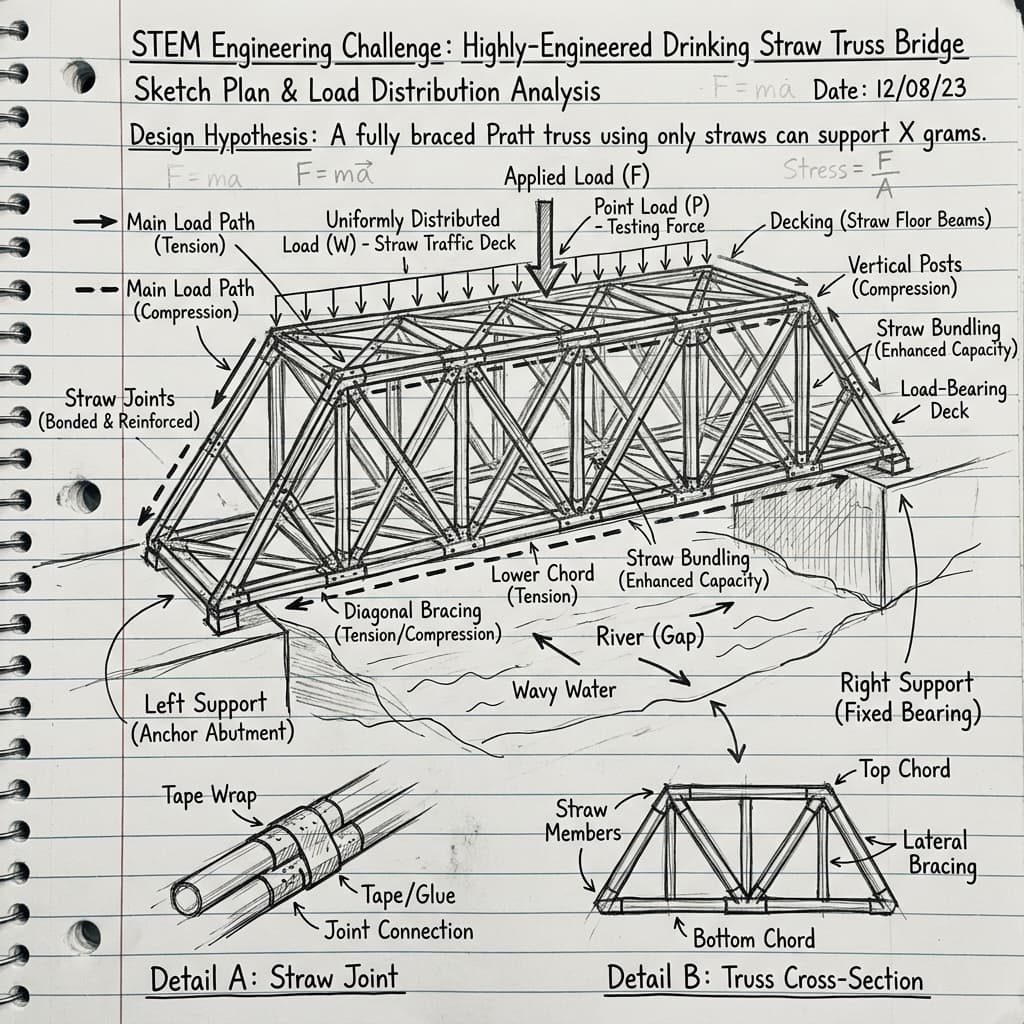 STEM Engineering Challenge: Highly-Engineered Drinking Straw Truss Bridge
Sketch Plan & Load Distribution Analysis
F = ma
Date: 12/08/23
Design Hypothesis: A fully braced Pratt truss using only straws can support X grams.
F = ma
F = ma⃗
Applied Load (F)
Stress = F/A
Main Load Path
(Tension)
Uniformly Distributed
Load (W) - Straw Traffic Deck
Point Load (P)
- Testing Force
Decking (Straw Floor Beams)
Main Load Path
(Compression)
Vertical Posts
(Compression)
Straw Bundling
(Enhanced Capacity)
Straw Joints
(Bonded & Reinforced)
Load-Bearing
Deck
Lower Chord
(Tension)
Straw Bundling
(Enhanced Capacity)
Diagonal Bracing
(Tension/Compression)
River (Gap)
Wavy Water
Left Support
(Anchor Abutment)
Right Support
(Fixed Bearing)
Tape Wrap
Tape/Glue
Joint Connection
Detail A: Straw Joint
Top Chord
Straw
Members
Lateral
Bracing
Bottom Chord
Detail B: Truss Cross-Section